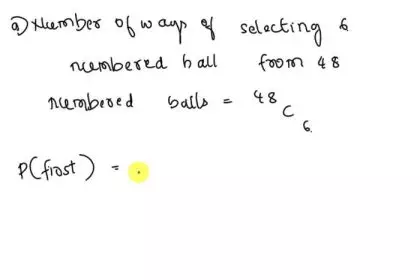 a) Number of ways of selecting 6
numbered ball from 48
numbered balls = 48 C 6.
P(first) =